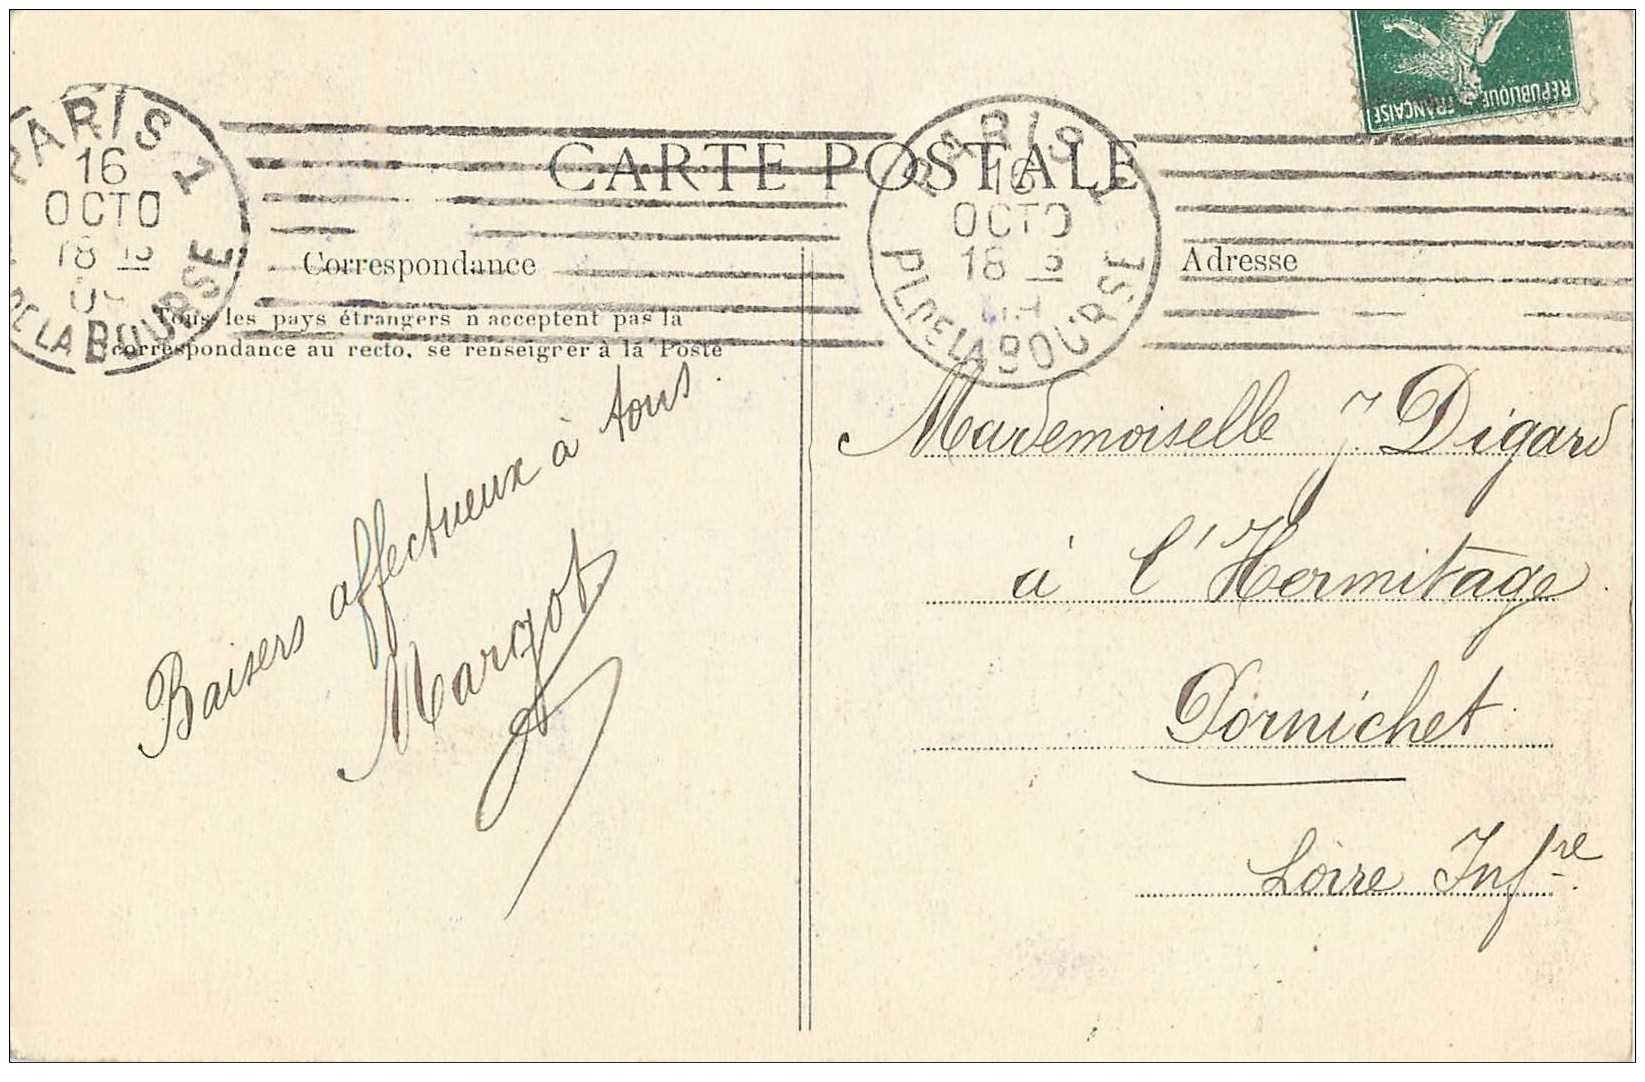 RÉPUBLIQUE FRANÇAISE
PARIS 1
16
OCTO
18
PL DE LA BOURSE
PARIS 1
16
OCTO
18
PL DE LA BOURSE
CARTE POSTALE
Correspondance
Tous les pays étrangers n'acceptent pas la
correspondance au recto, se renseigner à la Poste
Baisers affectueux à tous.
Margot
Adresse
Mademoiselle J. Digard
à l'Hermitage
Pornichet
Loire Infre